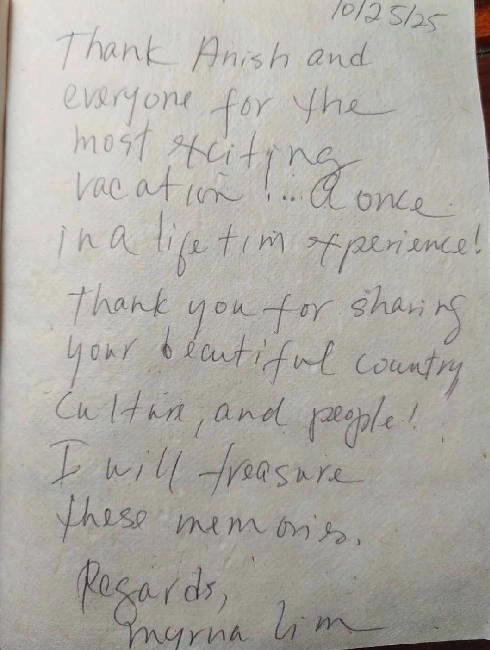 10/25/25
Thank Anish and
everyone for the
most exciting
vacation!... A once
in a life tim experience!
Thank you for sharing
your beautiful country
Culture, and people!
I will treasure
these memories.
Regards,
Myrna Lim